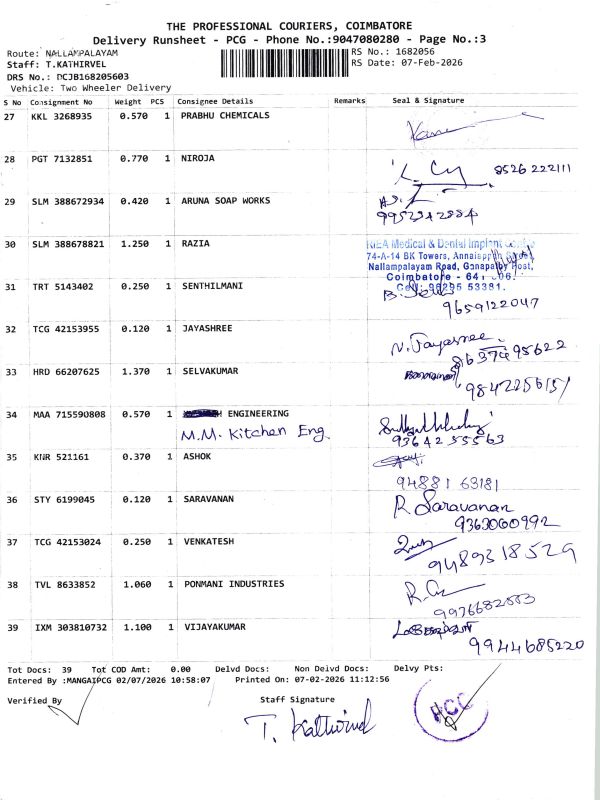 THE PROFESSIONAL COURIERS, COIMBATORE
Delivery Runsheet - PCG - Phone No.:9047080280 - Page No.:3
Route: NALLAMPALAYAM
RS No.: 1682056
Staff: T.KATHIRVEL
RS Date: 07-Feb-2026
DRS No.: DCJB168205603
Vehicle: Two Wheeler Delivery
S No Consignment No Weight PCS Consignee Details Remarks Seal & Signature
27 KKL 3268935 0.570 1 PRABHU CHEMICALS
28 PGT 7132851 0.770 1 NIROJA
8526 222111
29 SLM 388672934 0.420 1 ARUNA SOAP WORKS
30 SLM 388678821 1.250 1 RAZIA
Medical & Dental Implant
74-A-14 BK Towers, Street,
Nallampalayam Road, Ganapathy Post,
Coimbatore - 641 006.
Cell: 98295 53381.
31 TRT 5143402 0.250 1 SENTHILMANI
9659122047
32 TCG 42153955 0.120 1 JAYASHREE
N. Jayasree
6374495622
33 HRD 66207625 1.370 1 SELVAKUMAR
34 MAA 715590808 0.570 1 ENGINEERING
M.M. Kitchen Eng.
9364255563
35 KNR 521161 0.370 1 ASHOK
94881 63181
36 STY 6199045 0.120 1 SARAVANAN
R Saravanan
9363060992
37 TCG 42153024 0.250 1 VENKATESH
9489318529
38 TVL 8633852 1.060 1 PONMANI INDUSTRIES
39 IXM 303810732 1.100 1 VIJAYAKUMAR
9944685220
Tot Docs: 39 Tot COD Amt: 0.00 Delvd Docs: Non Delvd Docs: Delvy Pts:
Entered By :MANGAIPCG 02/07/2026 10:58:07 Printed On: 07-02-2026 11:12:56
Verified By
Staff Signature
T. Kathirvel